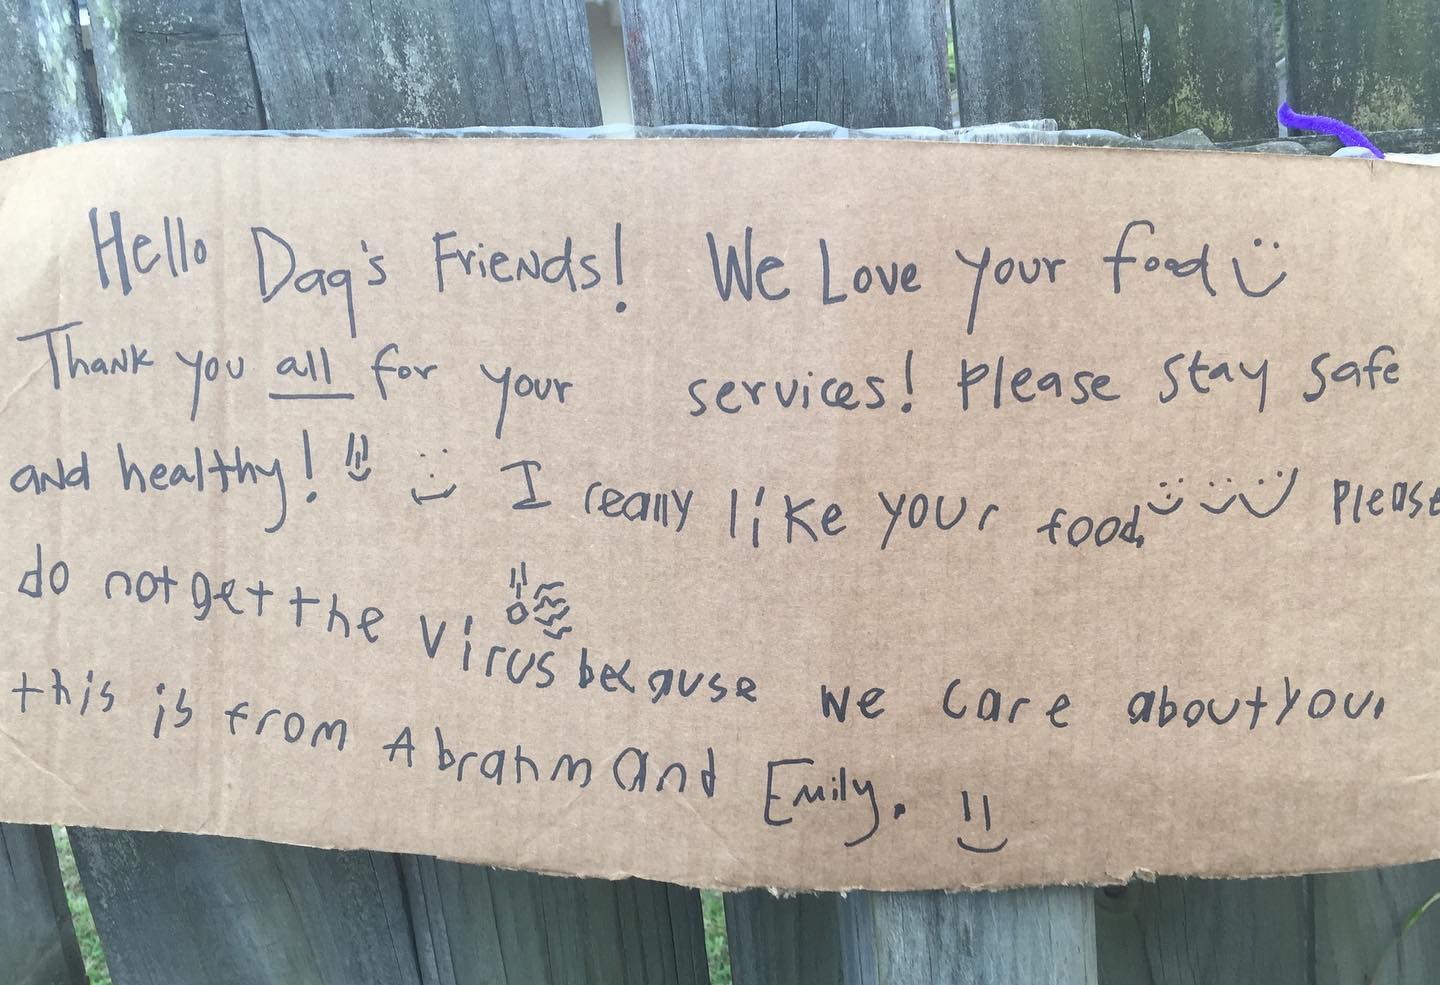 Hello Dag's Friends! We Love your food
Thank you all for your services! Please stay safe
and healthy! I really like your food. Please
do not get the virus because we care about you.
this is from Abrahm and Emily.